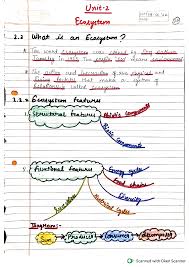 Unit-2
Ecosystem
2.1 What is an Ecosystem?
The word Ecosystem was coined by
Tansley in 1935. The prefix 'Eco' means environment
The and of the physical and
living that makes a system of
Relationship called Ecosystem.
Ecosystem Features
1. Structural Features
Abiotic components
Biotic components
2. Functional Features
Energy cycles
Food chains
Diversity
Nutrient cycles
Evolution
Diagram:-
Sun
Producers
Consumers
Decomposers
Scanned with Oken Scanner